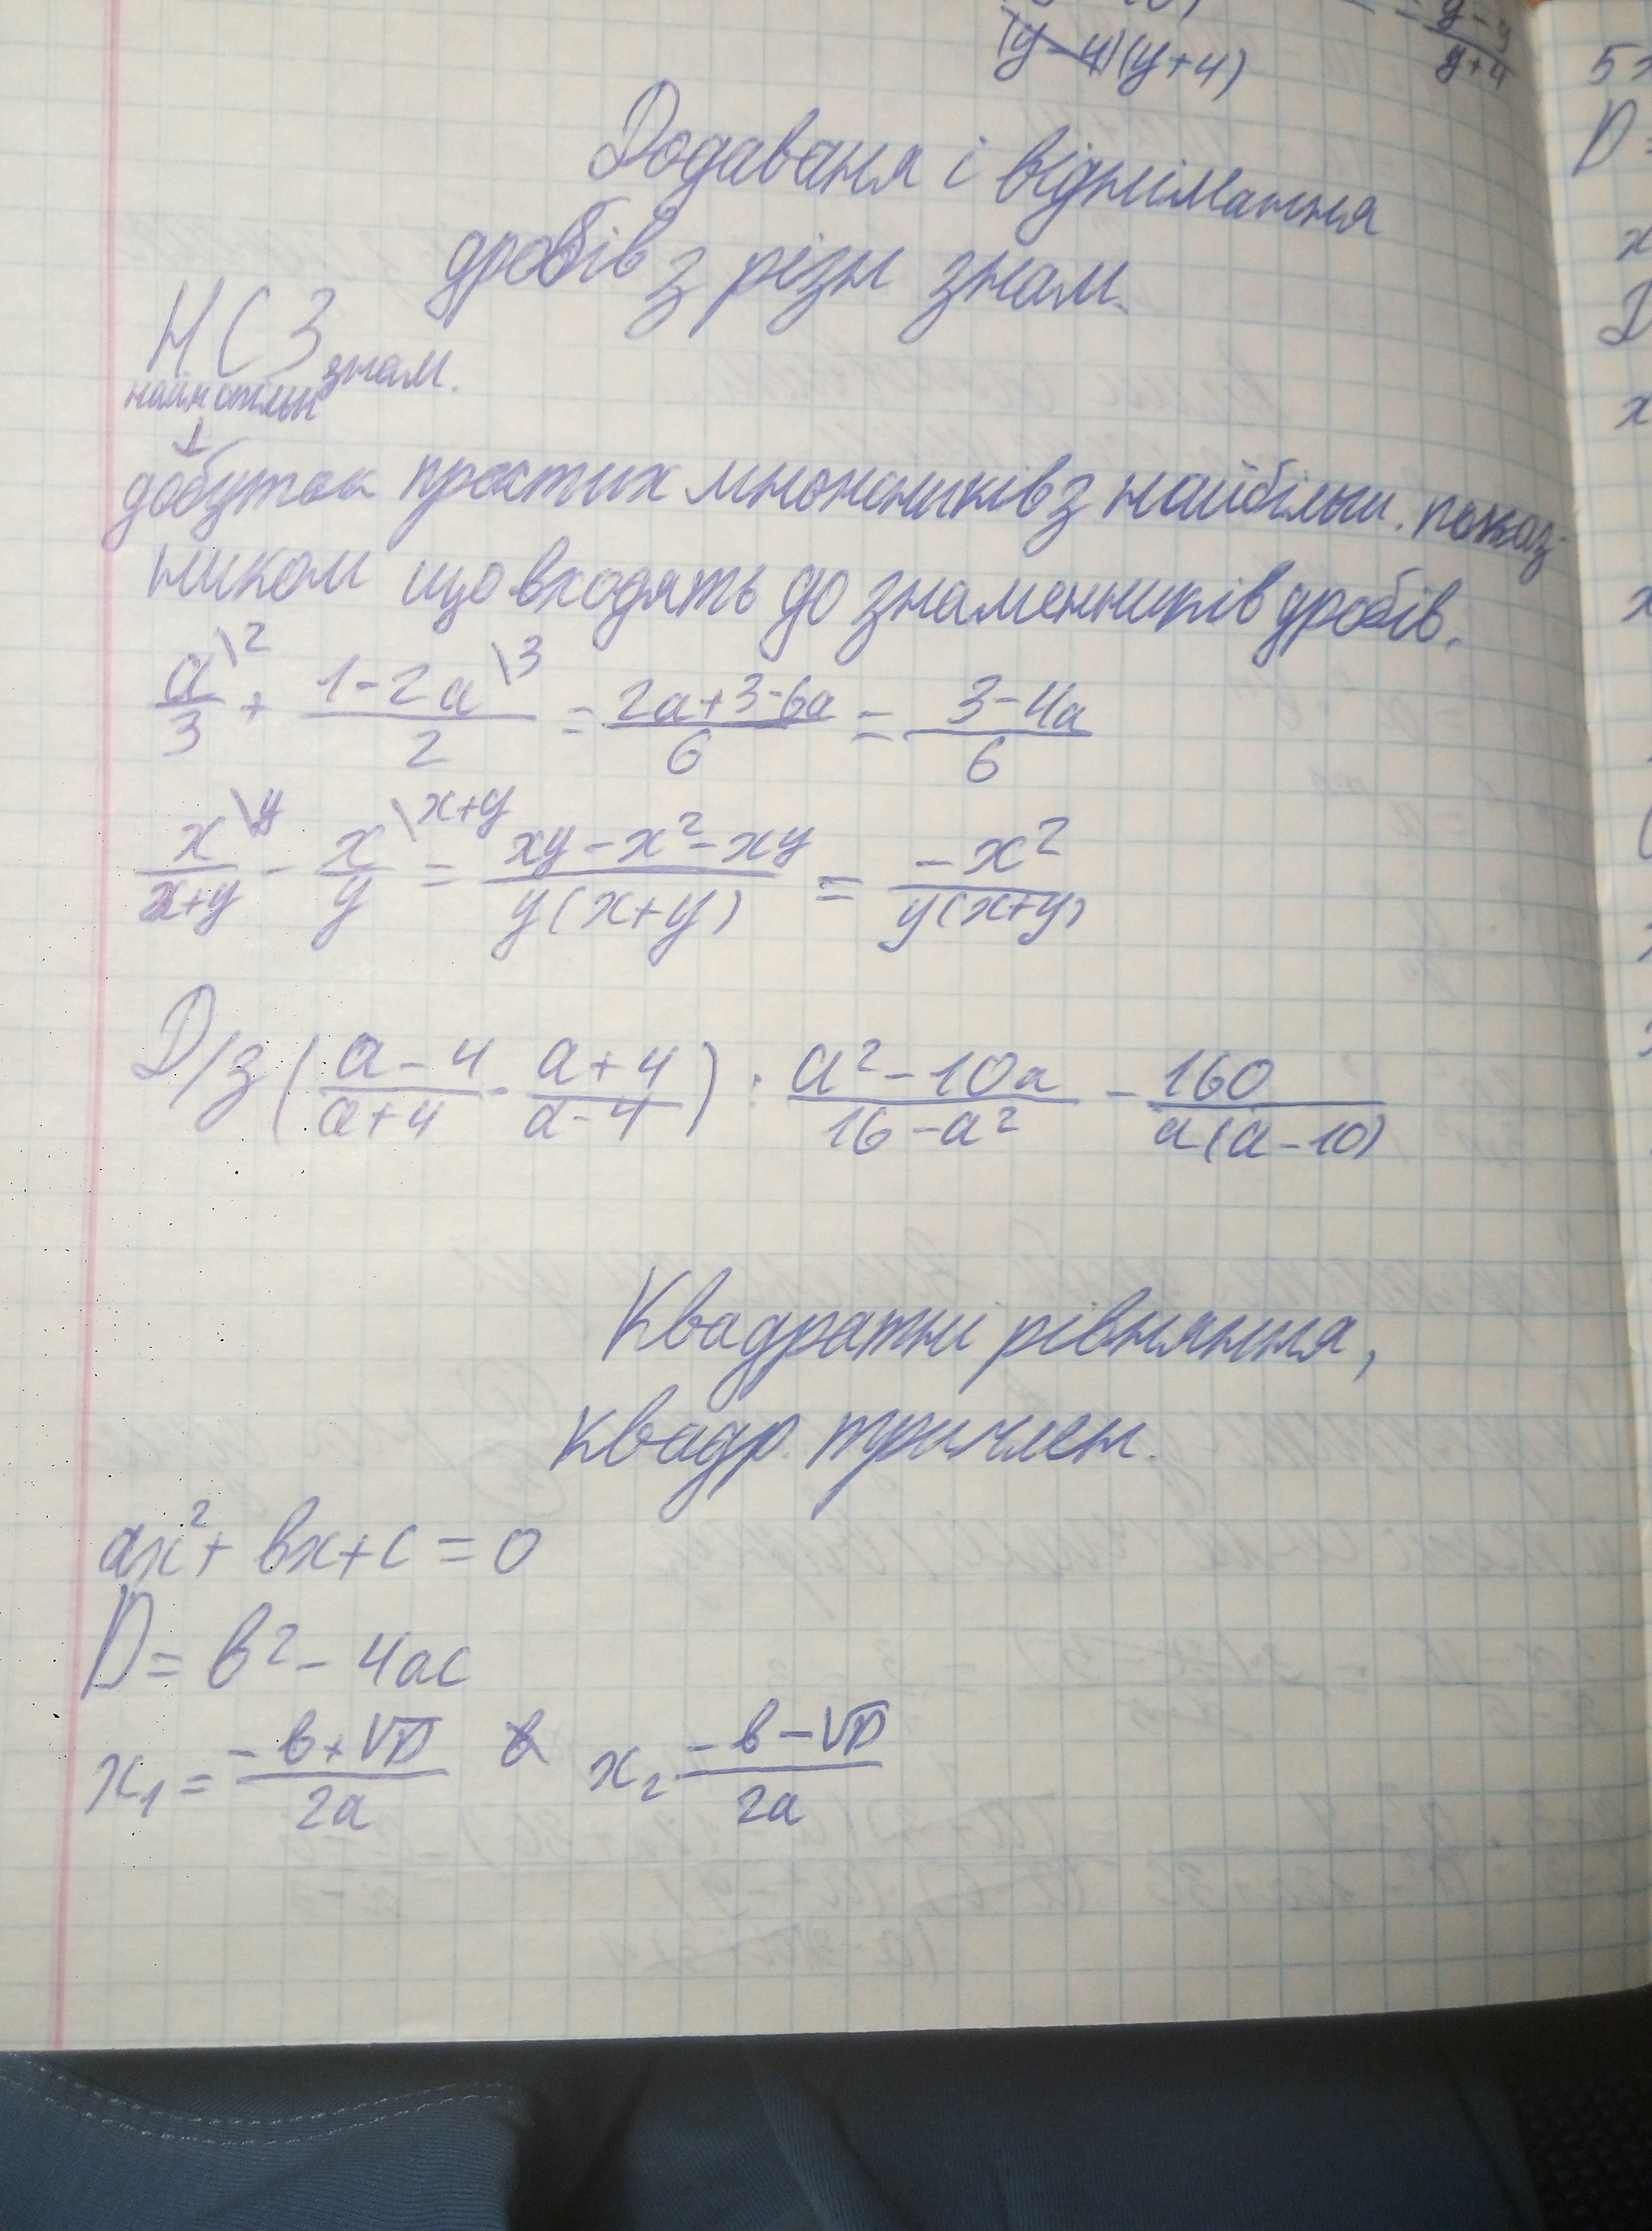 (y-4)(y+4)
y+4
Додаваня і віднімання
дробів з різн знам.
НСЗ знам.
найм спільн
↓
добуток простих множників з найбільш. показ-
ником що входять до знаменників дробів.
a\2/3 + 1-2a\3/2 = 2a+3-6a/6 = 3-4a/6
x\y/x+y - x\x+y/y = xy-x²-xy/y(x+y) = -x²/y(x+y)
D/з (a-4/a+4 - a+4/a-4) : a²-10a/16-a² - 160/a(a-10)
Квадратні рівняння,
квадр. тричлен.
ax²+ bx+c=0
D= b²-4ac
x₁= -b+√D/2a x₂ -b-√D/2a